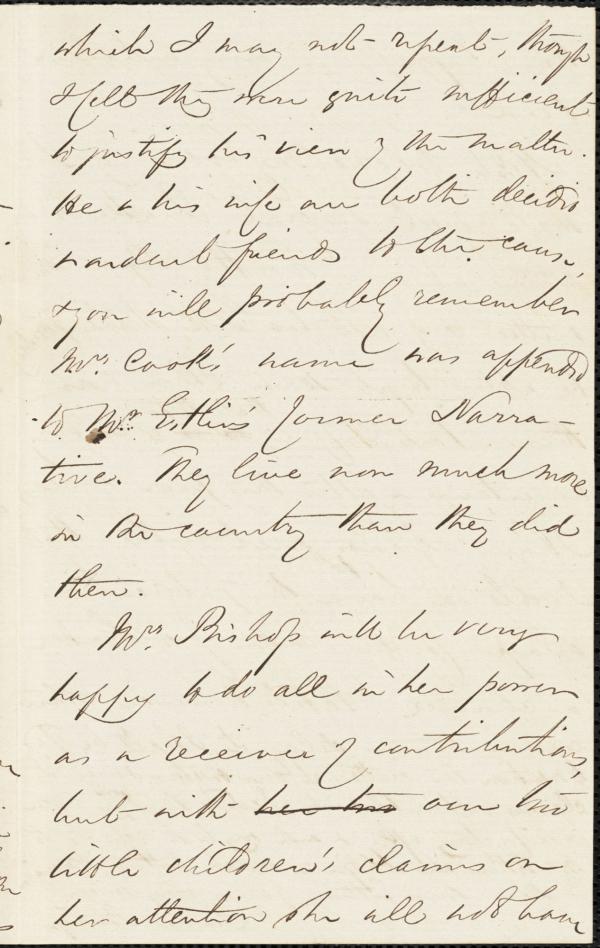 which I may not repeat, though
I felt they were quite sufficient
to justify his view of the matter.
He & his wife are both decided
& ardent friends to the cause,
& you will probably remember
Mrs. Cook's name was appended
to Mr. Estlin's former Narra-
tive. They live now much more
in the country than they did
then.
Mrs. Bishop will be very
happy to do all in her power
as a receiver of contributions,
but with her two our two
little children's claims on
her attention she will not have